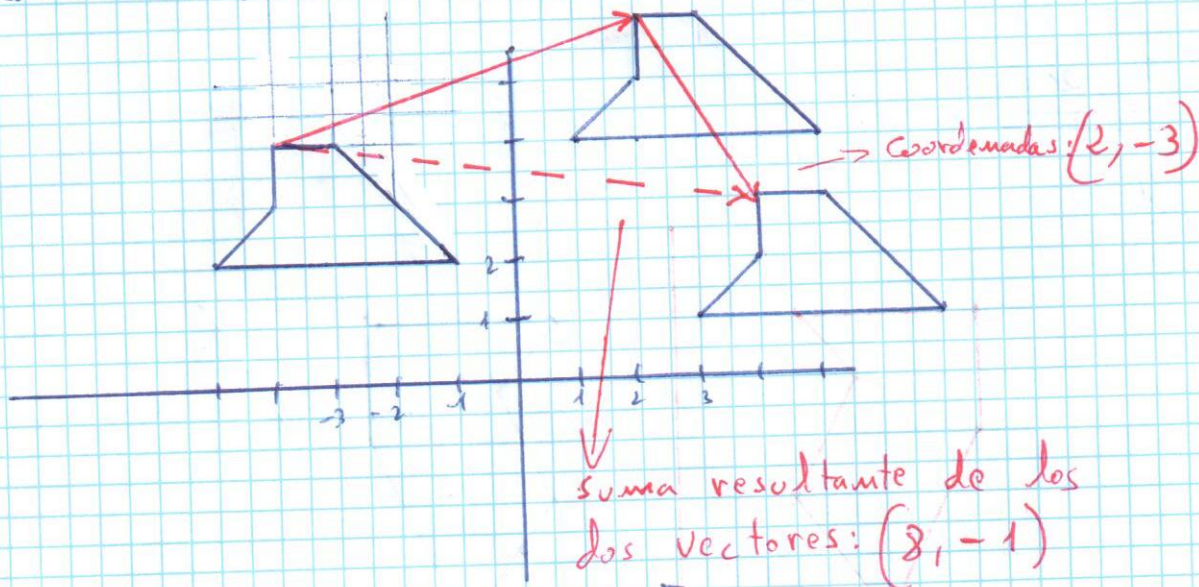 coordenadas: (2, -3)
2
1
-3 -2 -1 1 2 3
suma resultante de los
dos vectores: (8, -1)